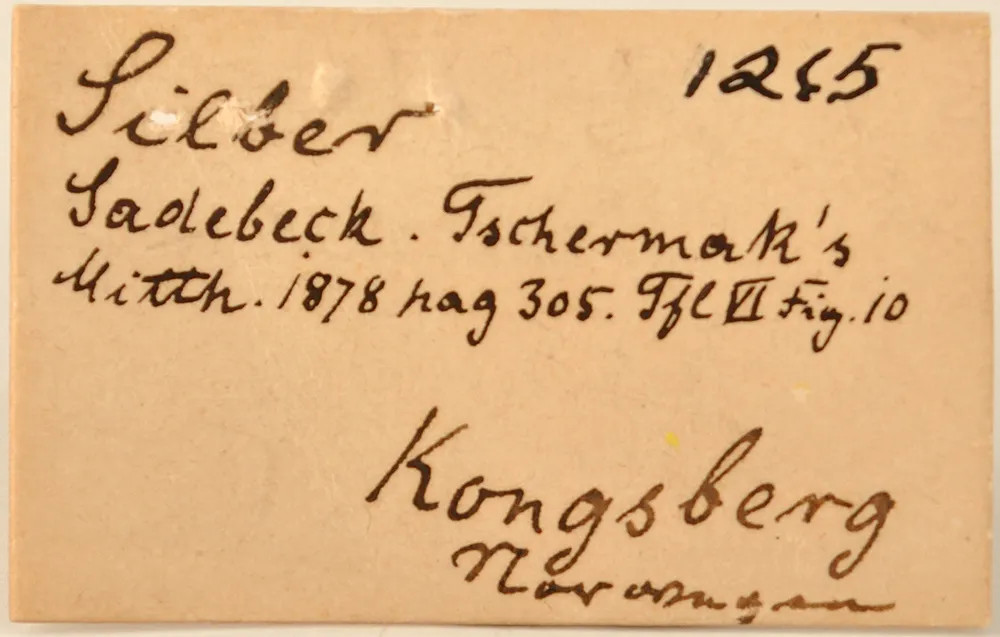 Silber
1265
Sadebeck. Tschermak's
Mitth. 1878 pag 305. Tfl VI Fig. 10
Kongsberg
Norwegen